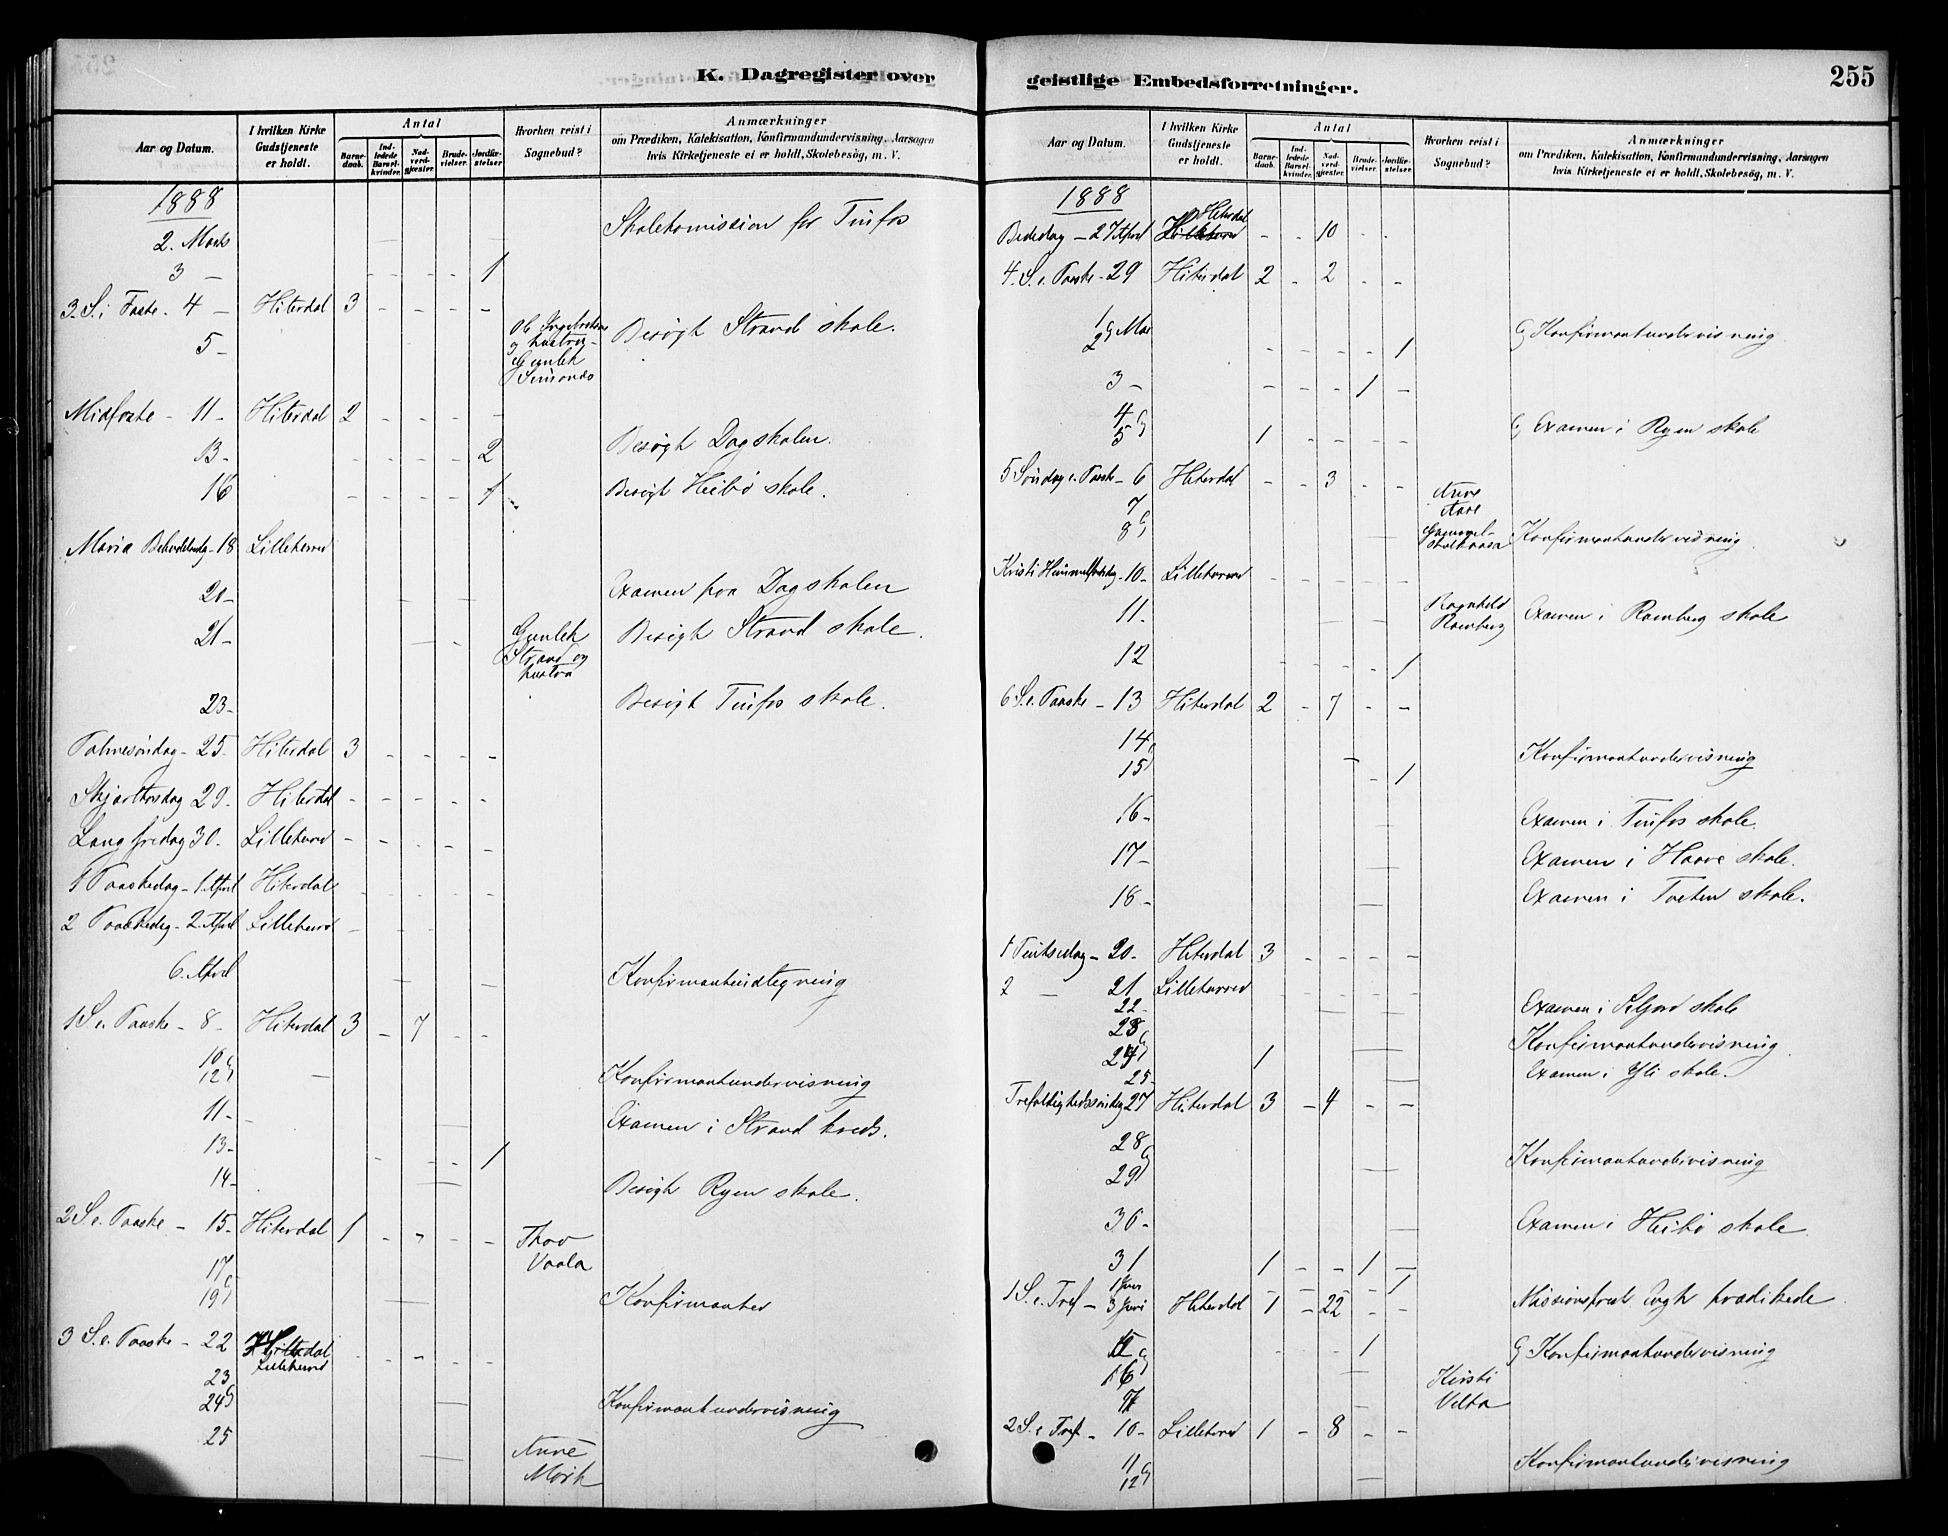 K. Dagregister over geistlige Embedsforretninger.
255
Aar og Datum.
I hvilken Kirke Gudstjeneste er holdt.
Antal
Barnedaab.
Indledede Barselkvinder.
Nadverdgjester.
Brudevielser.
Jordfæstelser
Hvorhen reist i Sognebud?
Anmærkninger
om Prædiken, Katekisation, Konfirmandundervisning, Aarsagen
hvis Kirketjeneste ei er holdt, Skolebesög, m. V.
1888
2. Marts Skolekomission for Tinfos
3 — - - - - 1
3. S. i Faste. 4 — Hiterdal 3 - - - -
5 - og hustru - Gunlek Besøgt Strand skole.
Midfaste - 11 - Hiterdal 2 - - - -
13 - - - - - 2 Besøgt Dagskolen.
16 - - - - 1 Besøgt Heibø skole.
Maria - 18 Lilleherred
20 - Examen paa Dagskolen
21 - Gunlek Strand og hustru Besøgt Strand skole.
23 - Besøgt Tinfos skole.
Palmesöndag - 25 - Hiterdal 3 - - - -
Skjærthorsdag 29 - Hiterdal - - - - -
Langfredag 30. Lilleherred - - - - -
1 Paaskedag - 1. April Hiterdal - - - - -
2 Paaskedag - 2. April Lilleherred - - - -
6. April
1 S. e. Paaske - 8 - Hiterdal 3 - 7 - -
10
12 Konfirmantundervisning
11 - Examen i Strand kreds.
13 - - - - - 1
14 - Besøgt Ryen skole.
2 S. e. Paaske - 15 - Hiterdal 1 - - - - Thov Vaala
17
19 Konfirmanter
3 S. e. Paaske - 22 Hiterdal Lilleherred - - - - -
23
24 Konfirmantundervisning
25 Anne Mork
Aar og Datum.
I hvilken Kirke Gudstjeneste er holdt.
Antal
Barnedaab.
Indledede Barselkvinder.
Nadverdgjester.
Brudevielser.
Jordfæstelser.
Hvorhen reist i Sognebud?
Anmærkninger
om Prædiken, Katekisation, Konfirmandundervisning, Aarsagen
hvis Kirketjeneste ei er holdt, Skolebesög, m. V.
1888
Bededag - 27 April Lilleherred Hiterdal - - 10 - -
4. S. e. Paaske - 29 Hiterdal 2 - 2 - -
1 Mai
2 - - - - 1 Konfirmantundervisning
3 - - - - 1 -
4
5 1 - - - - Examen i Ryen skole
5 Söndag e. Paaske - 6 Hiterdal - - 3 - -
7
8 Anne Konfirmantundervisning
Kristi Himmelfartsdag - 10 - Lilleherred - - - - -
11. Ragnhild Ramberg Examen i Ramberg skole
12 - - - - 1
6 S. e. Paaske - 13 Hiterdal 2 - 7 - -
14
15 - 1 Konfirmantundervisning
16 - Examen i Tinfos skole
17 - Examen i Haave skole.
18 - Examen i Tveten skole.
1 Pintsedag - 20 - Hiterdal 3 - - - -
2 — 21 Lilleherred - - - - -
22 - Examen i Seljord skole
23
24 1 Konfirmantundervisning
25 - Examen i Yli skole.
Trefoldighedssöndag 27 Hiterdal 3 - 4 - -
28
29 Konfirmantundervisning
30 - Examen i Heibø skole
31 1 - - 1 -
1 Juni - - - - 1
1 S. e. Tref - 3 Juni Hiterdal 1 - 22 - - Missionsprest prædikede
5 - - - 1 Konfirmantundervisning
6
7 Kirsti Velta
2 S. e. Tref - 10 - Lilleherred 1 - 8 - -
11
12 Konfirmantundervisning